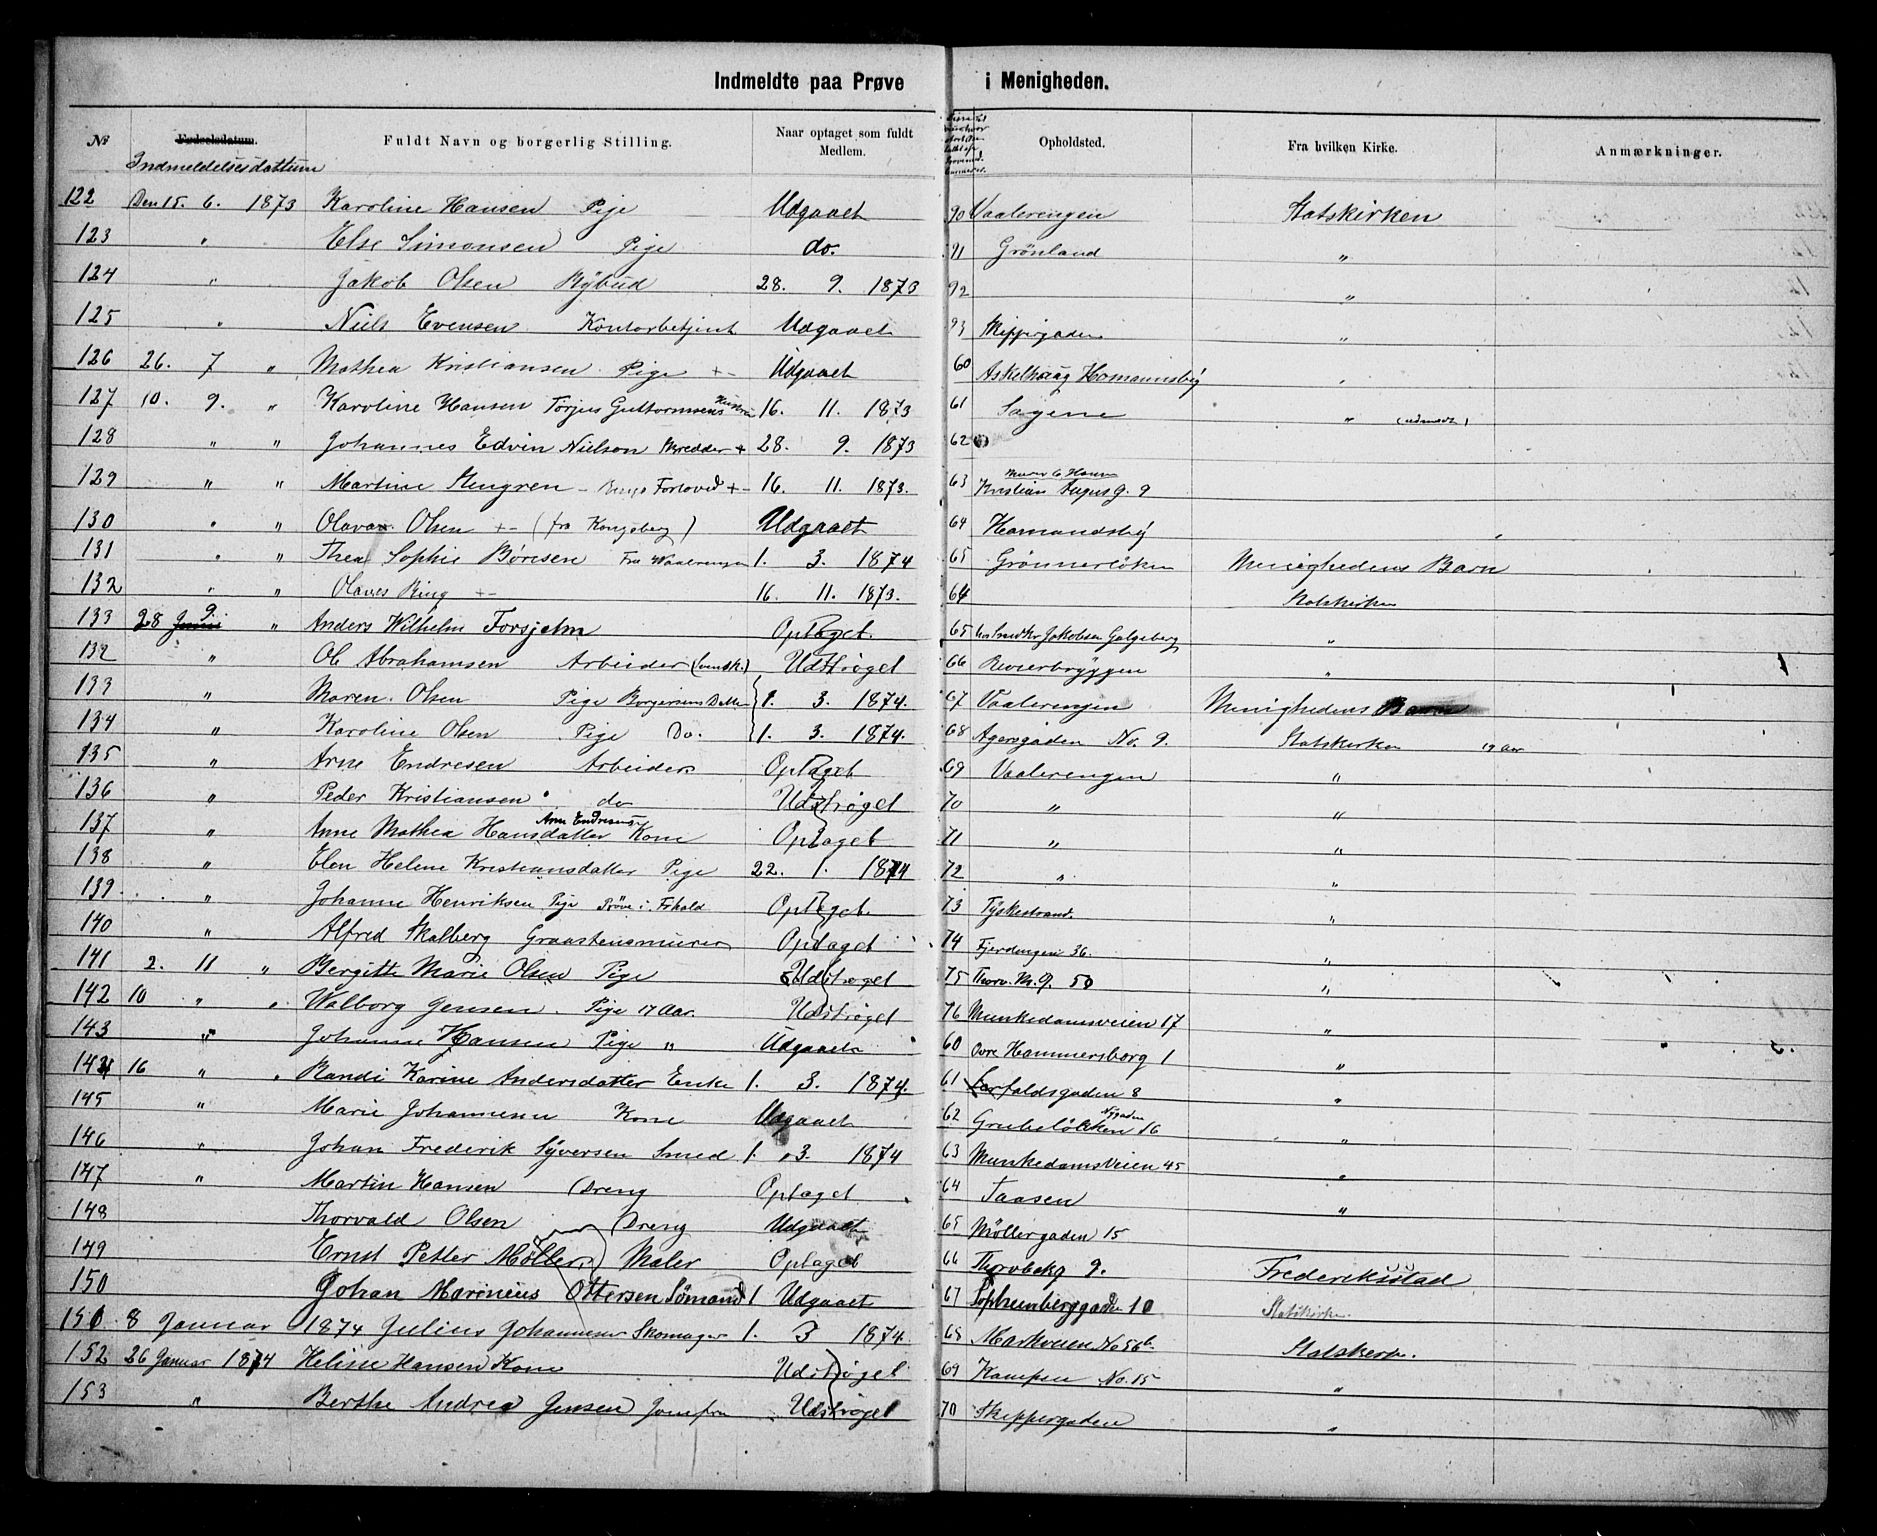 Indmeldte paa Prøve i Menigheden.
№ Fødselsdatum. Fuldt Navn og borgerlig Stilling. Naar optaget som fuldt Medlem. Opholdsted. Fra hvilken Kirke. Anmærkninger.
Indmeldelsesdattum
122 Den 15. 6. 1873 Karoline Hansen Pige Udgaaet 90 Vaalerengen Statskirken
123 " Else Simonsen Pige do. 91 Grønland "
124 " Jakob Olsen Bybud 28. 9. 1873 92 "
125 " Niels Evensen Kontorbetjent Udgaaet 93 Skippergaden "
126 26. 7 " Mathea Kristiansen Pige +- Udgaaet 60 Askelhaug Homannsby "
127 10. 9. " Karoline Hansen Torjus Guttormsens Hustru 16. 11. 1873 61 Sagene " (udmeldt)
128 " " Johannes Edvin Nielson Skredder + 28. 9. 1873 62
129 " " Martine Stengren - Forloved +- 16. 11. 1873. 63 Kristian Augus G. 9
130 " " Olava Olsen +- (fra Kongsberg) Udgaaet 64 Homandsby
131 " " Thea Sophie Børresen Fra Waalerengen 1. 3. 1874 65 Grønnerløken Menighedens Barn
132 " " Olaves Ring +- 16. 11. 1873. 64 Statskirken
133 28 Juni 9 " Anders Wilhelm Forsjelm Optaget 65 hos Smedker Jakobsen Galgeberg "
132 " Ol Abrahamsen Arbeider (svensk.) Udstrøget 66 Revierbryggen "
133 " Maren Olsen Pige Borgersens Datter 1. 3. 1874. 67 Vaalerengen Menighedens Barn
134 " Karoline Olsen Pige Do. 1. 3. 1874. 68 Agersgaden No. 9. Statskirken 19 Aar
135 " Arne Endresen Arbeider Optaget 69 Vaalerengen "
136 " Peder Kristiansen do Udstrøget 70 " "
137 " Anne Mathea Hansdatter Arne Endresens Kone Optaget 71 " "
138 " Elen Helene Kristiansdatter Pige 22. 1. 1874 72 " "
139. " Johanne Henriksen Pige Prøve i Frhald Optaget 73 Tyskestrand "
140 " Alfred Skalberg Graastensmurer Optaget 74 Fjerdingen 36. "
141 2. 11 " Bergitte Marie Olsen Pige Udstrøget 75 Thorv. M. G. 50 "
142 10 " " Walborg Jensen Pige 17 Aar. Udstrøget 76 Munkedamsveien 17 "
143 " Johanne Hansen Pige " Udgaaet 60 Ovre Hammersborg 1 "
144 16 " " Randi Karine Andersdatter Enke 1. 3. 1874. 61 faldsgaden 8 "
145 " Marie Johannesen Kone Udgaaet 62 Grubeløkken Nygaden 16 "
146 " Johan Frederik Syversen Smed 1. 3. 1874 63 Munkedamsveien 45 "
147 " Martin Hansen Dreng Optaget 64 Taasen "
148 Thorvald Olsen Dreng Udgaaet 65 Møllergaden 15
149 Ernst Petter Møller Maler Optaget 66 Thorvbekg 9. Frederiksstad
150 Johan Marinius Ottersen Sømand Udgaaet 67 Sophienberggaden 10 Statskirken
150 8 Januar 1874 Julius Johannesen Skomager 1. 3 1874. 68 Markveien No 56b. Statskirk.
152 26 Januar 1874 Heline Hansen Kone Udstrøget 69 Kampen No. 15 "
153 " Berthe Andrea Jensen Jomfru Udstrøget 70 Skippergaden "